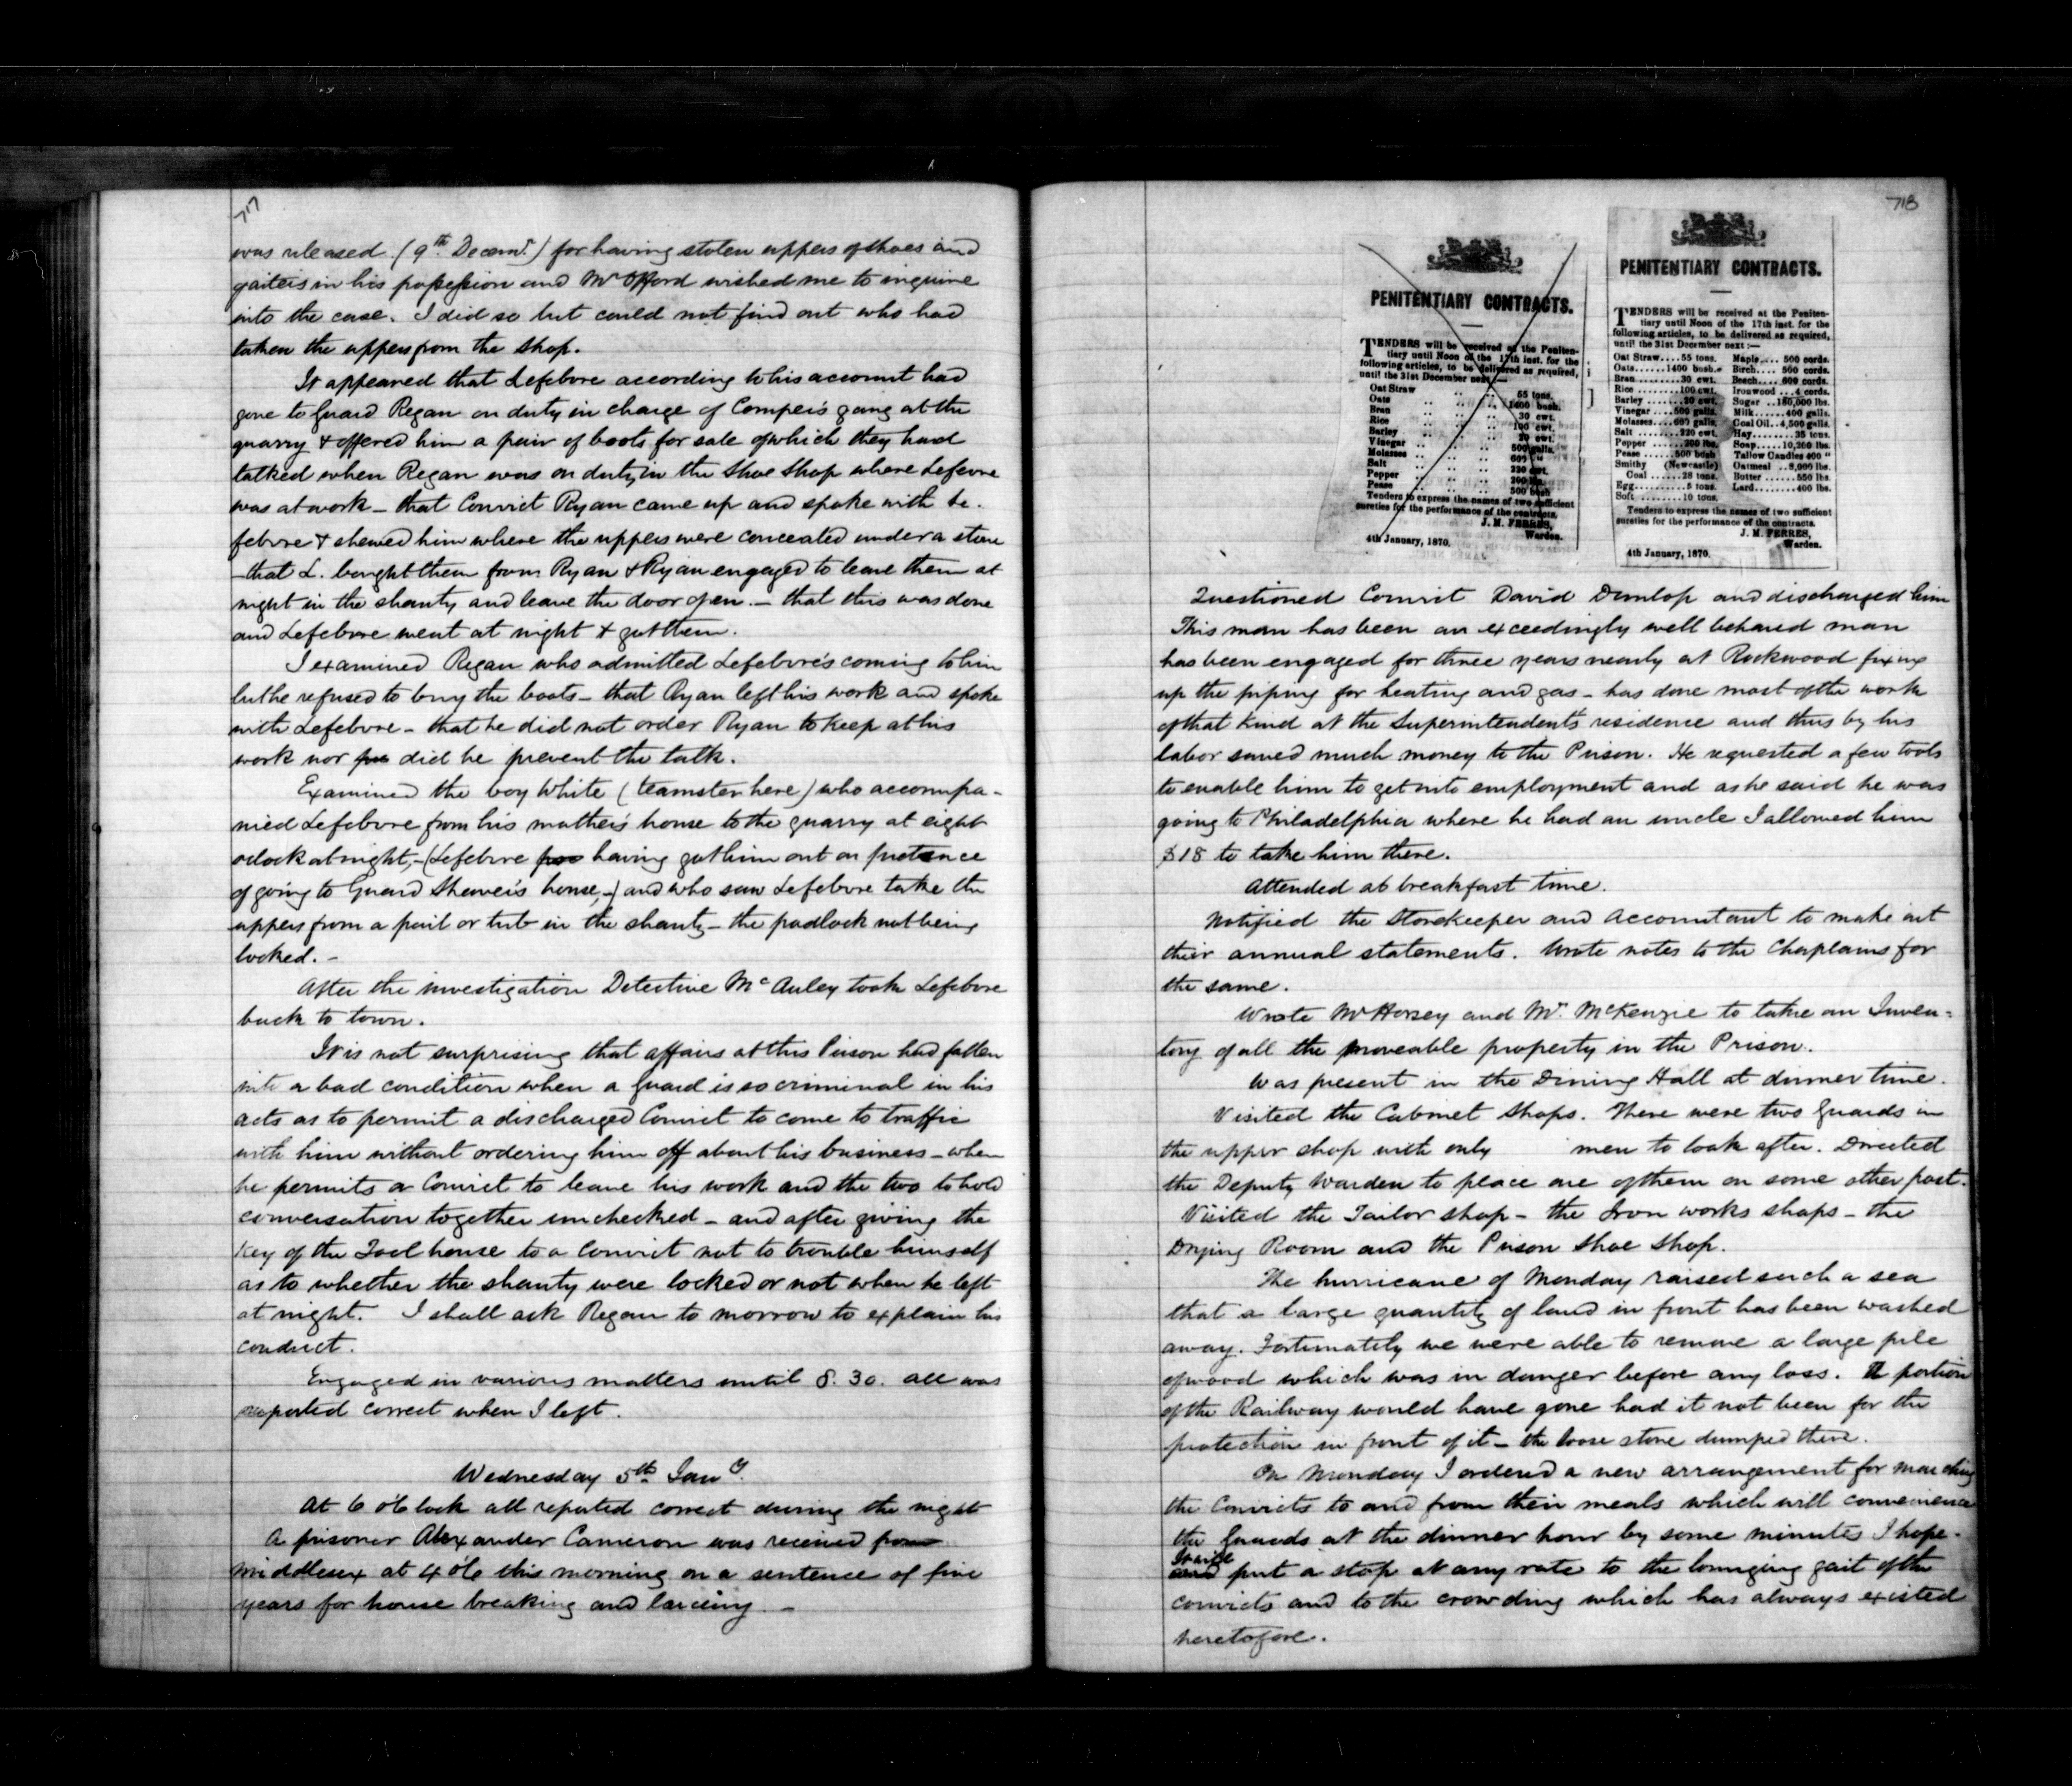 717
was released (9th Decemr.) for having stolen uppers of shoes and
gaiters in his possession and Mr Offord wished me to inquire
into the case. I did so but could not find out who had
taken the uppers from the shop.
It appeared that Lefebvre according to his account had
gone to Guard Regan on duty in charge of Comper's gang at the
quarry & offered him a pair of boots for sale of which they had
talked when Regan was on duty in the Shoe Shop where Lefevre
was at work – that Convict Ryan came up and spoke with Le.
febvre & shewed him where the uppers were concealed under a stone
– that L. bought them from Ryan & Ryan engaged to leave them at
night in the shanty and leave the door open. – that this was done
and Lefebvre went at night & got them.
I examined Regan who admitted Lefebvre's coming to him
but he refused to buy the boots – that Ryan left his work and spoke
with Lefebvre – that he did not order Ryan to keep at his
work nor pre did he prevent the talk.
Examined the boy White (teamster here) who accompa-
nied Lefebvre from his mother's house to the quarry at eight
oclock at night, – (Lefebvre having got him out on pretence
of going to Guard Shewei's house, –) and who saw Lefebvre take the
uppers from a pail or tub in the shanty – the padlock not being
locked. –
After the investigation Detective McAuley took Lefebvre
back to town.
It is not surprising that affairs at this Prison had fallen
into a bad condition when a Guard is so criminal in his
acts as to permit a discharged Convict to come to traffic
with him without ordering him off about his business – when
he permits a Convict to leave his work and the two to hold
conversation together unchecked – and after giving the
key of the Tool house to a Convict not to trouble himself
as to whether the shanty were locked or not when he left
at night. I shall ask Regan to morrow to explain his
conduct.
Engaged in various matters until 8.30. all was
reported correct when I left.
Wednesday 5th Jany.
At 6 o'clock all reported correct during the night
A prisoner Alexander Cameron was received from
Middlesex at 4 o'c this morning on a sentence of five
years for house breaking and larceny. –
718
PENITENTIARY CONTRACTS.
TENDERS will be received at the Peniten-
tiary until Noon of the 17th inst. for the
following articles, to be delivered as required,
until the 31st December next:—
Oat Straw .. .. 55 tons.
Oats .. .. 1400 bush.
Bran .. .. 30 cwt.
Rice .. .. 100 cwt.
Barley .. .. 20 cwt.
Vinegar .. .. 500 galls.
Molasses .. .. 600 "
Salt .. .. 220 cwt.
Pepper .. .. 200 lbs.
Pease .. .. 500 bush
Tenders to express the names of two sufficient
sureties for the performance of the contracts.
J. M. FERRES,
Warden.
4th January, 1870.
PENITENTIARY CONTRACTS.
TENDERS will be received at the Peniten-
tiary until Noon of the 17th inst. for the
following articles, to be delivered as required,
until the 31st December next:—
Oat Straw....55 tons. Maple.... 500 cords.
Oats......1400 bush. Birch.... 500 cords.
Bran.........30 cwt. Beech.... 600 cords.
Rice ........100 cwt. Ironwood ...4 cords.
Barley .......20 cwt. Sugar ..180,000 lbs.
Vinegar ....500 galls. Milk......400 galls.
Molasses....600 galls. Coal Oil..4,500 galls.
Salt ........220 cwt. Hay.........35 tons.
Pepper ......200 lbs. Soap.....10,200 lbs.
Pease ......500 bush Tallow Candles 400 "
Smithy (Newcastle) Oatmeal ..8,000 lbs.
Coal .......28 tons. Butter ......550 lbs.
Egg.........5 tons. Lard.......400 lbs.
Soft ........10 tons.
Tenders to express the names of two sufficient
sureties for the performance of the contracts.
J. M. FERRES,
Warden.
4th January, 1870.
Questioned Convict David Dunlop and discharged him
This man has been an exceedingly well behaved man
has been engaged for three years nearly at Rockwood fixing
up the piping for heating and gas – has done most of the work
of that kind at the Superintendent's residence and thus by his
labor saved much money to the Prison. He requested a few tools
to enable him to get into employment and as he said he was
going to Philadelphia where he had an uncle I allowed him
$18 to take him there.
Attended at breakfast time.
Notified the Storekeeper and Accountant to make out
their annual statements. Wrote notes to the Chaplains for
the same.
Wrote Mr Horsey and Mr. McKenzie to take an Inven=
tory of all the moveable property in the Prison.
Was present in the Dining Hall at dinner time.
Visited the Cabinet Shops. There were two Guards in
the upper shop with only men to look after. Directed
the Deputy Warden to place one of them on some other post.
Visited the Tailor shop – the Iron works shops – the
Drying Room and the Prison Shoe Shop.
The hurricane of Monday raised such a sea
that a large quantity of land in front has been washed
away. Fortunately we were able to remove a large pile
of wood which was in danger before any loss. A portion
of the Railway would have gone had it not been for the
protection in front of it – the loose stone dumped there.
On Monday I ordered a new arrangement for marching
the Convicts to and from their meals which will convenience
the Guards at the dinner hour by some minutes I hope.
It will
and put a stop at any rate to the lounging gait of the
convicts and to the crowding which has always existed
heretofore.